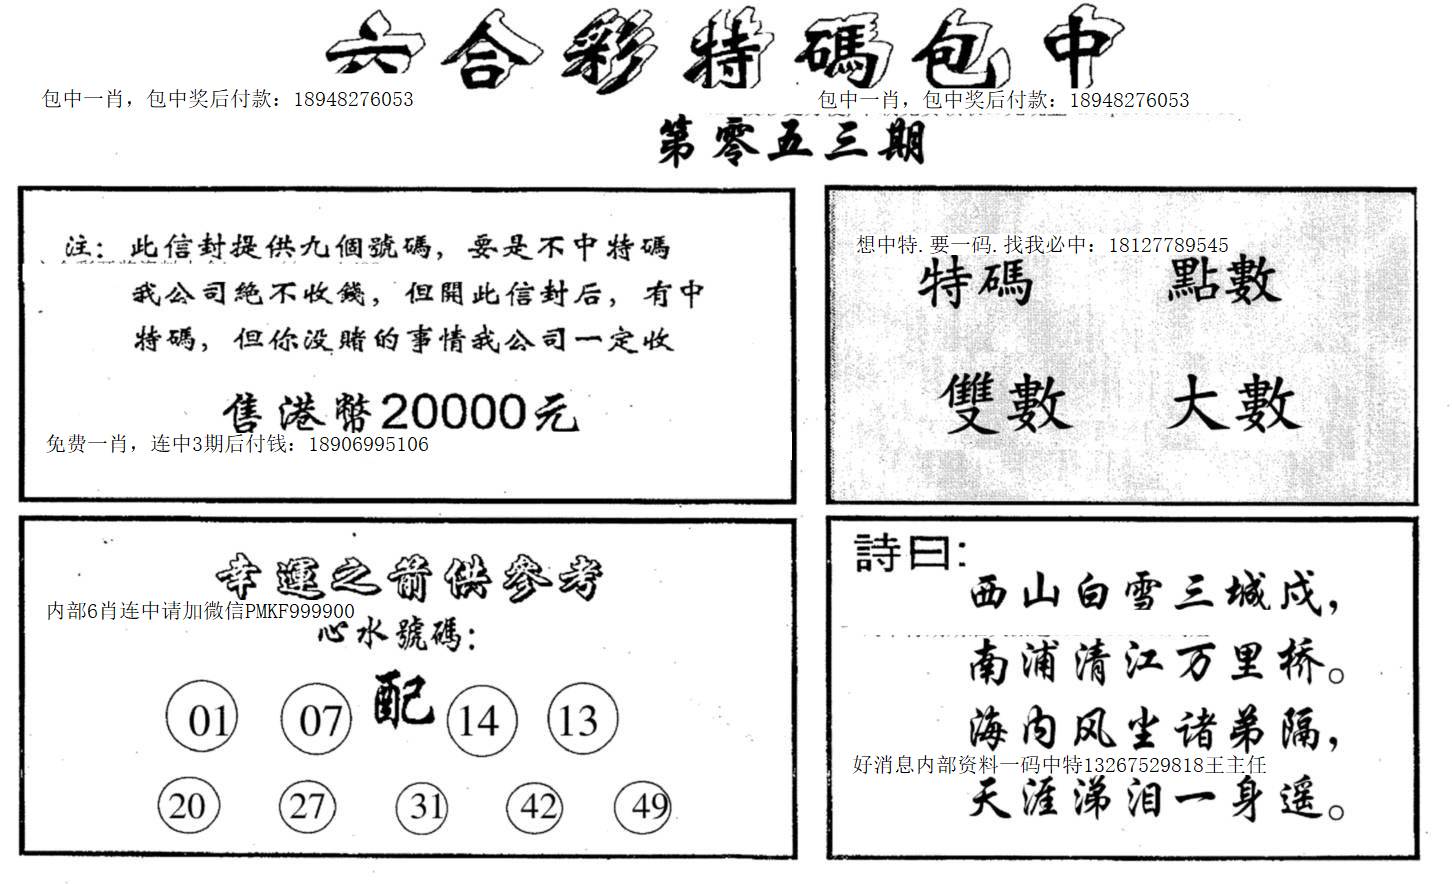 六合彩特碼包中
包中一肖，包中奖后付款：18948276053
包中一肖，包中奖后付款：18948276053
第零五三期
注：此信封提供九個號碼，要是不中特碼
我公司絕不收錢，但開此信封后，有中
特碼，但你没賭的事情我公司一定收
售港幣20000元
免费一肖，连中3期后付钱：18906995106
想中特.要一码.找我必中：18127789545
特碼 點數
雙數 大數
幸運之箭供參考
内部6肖连中请加微信PMKF999900
心水號碼：
01 07 配 14 13
20 27 31 42 49
詩曰：
西山白雪三城戍，
南浦清江万里桥。
海内风尘诸弟隔，
好消息内部资料一码中特13267529818王主任
天涯涕泪一身遥。